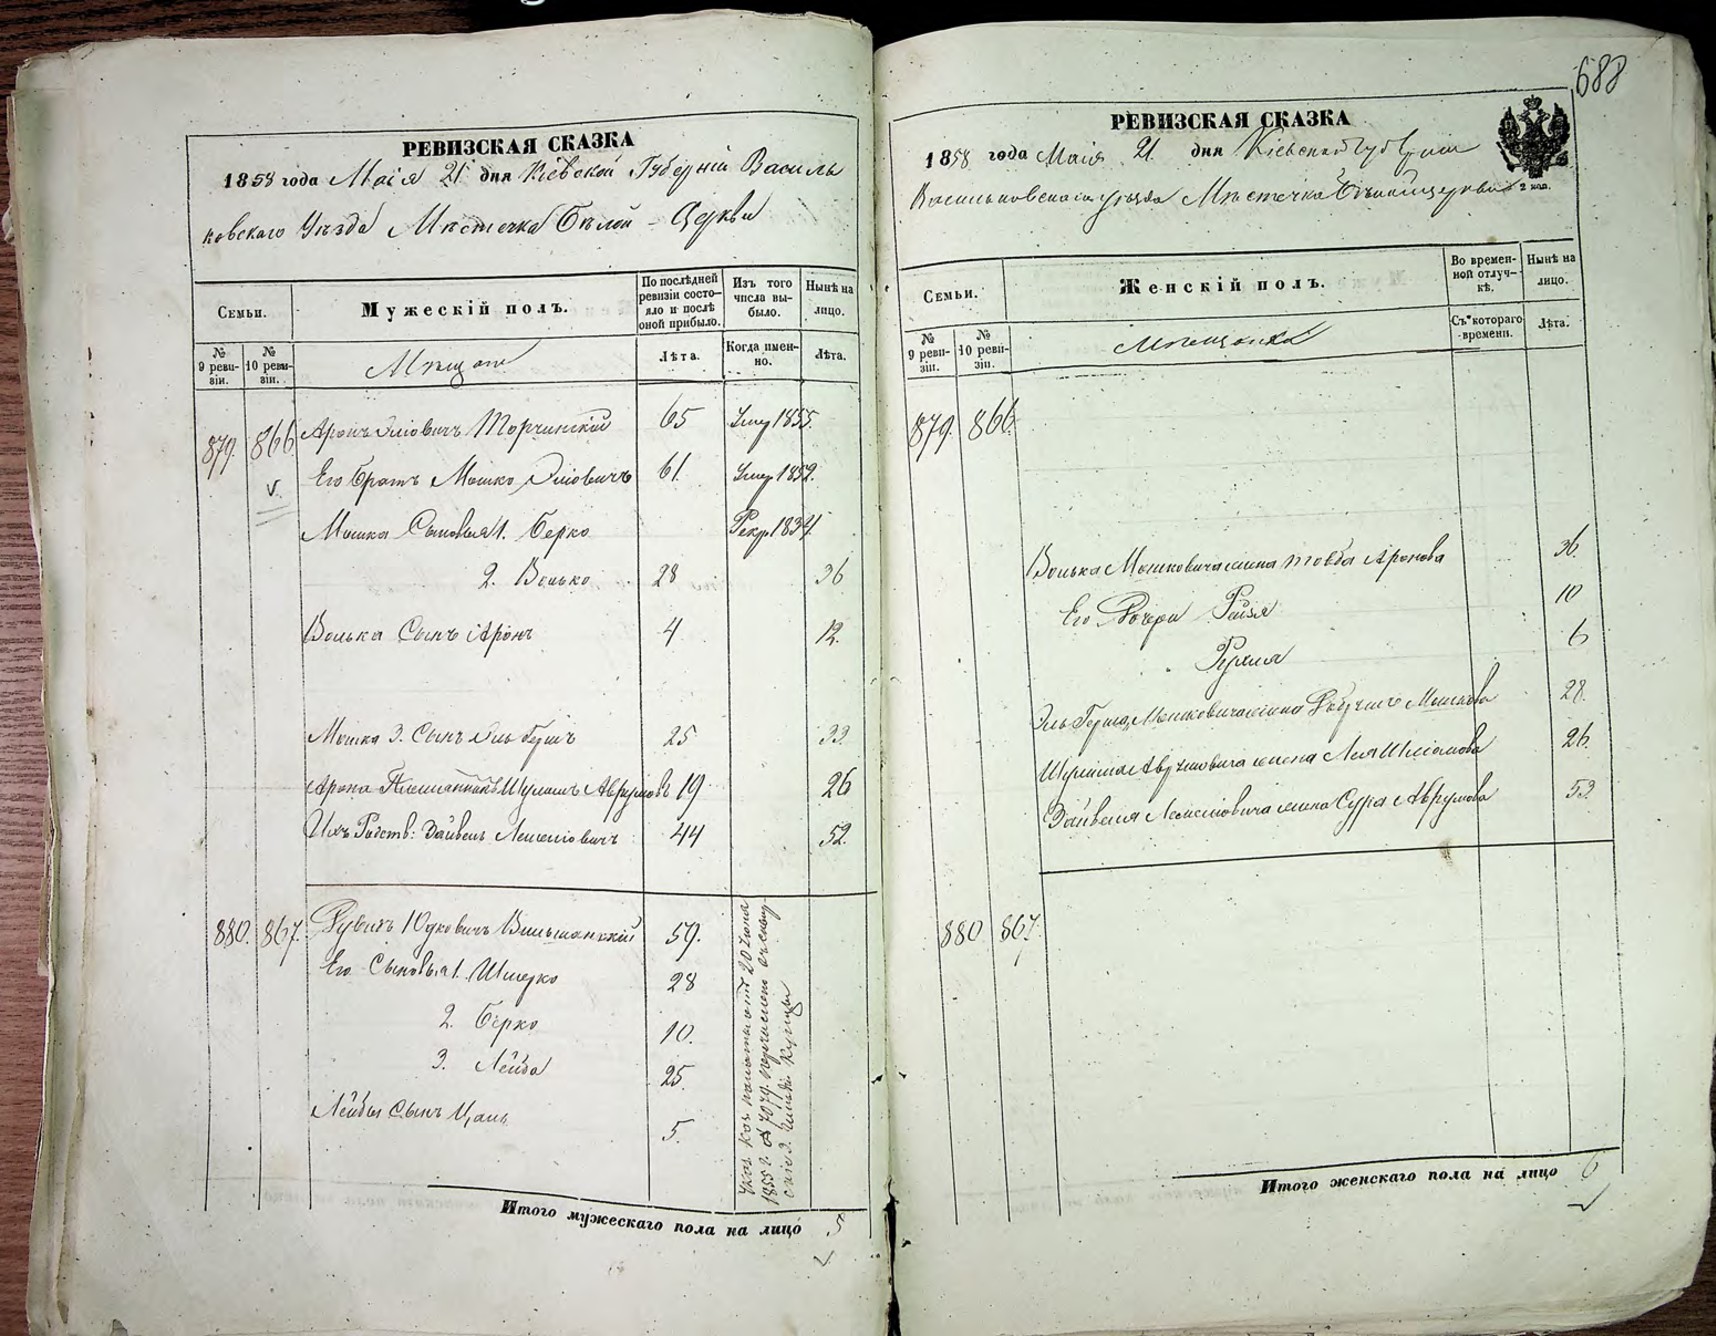 688
РЕВИЗСКАЯ СКАЗКА
1858 года Маія 21 дня Кіевской Губерніи Василь
ковскаго Уѣзда Мѣстечка Бѣлой - Церкви
Семьи.
Мужескій полъ.
По послѣдней ревизіи состояло и послѣ оной прибыло.
Изъ того числа выбыло.
Нынѣ на лицо.
№ 9 ревизіи.
№ 10 ревизіи.
Мѣщане
Лѣта.
Когда именно.
Лѣта.
879. 866 Аронъ Эліовичъ Торчинскій 65 Умер 1855.
Его Братъ Мошко Эліовичъ 61. Умер 1852.
Мошка Сыновья 1. Берко Рекр. 1834
2. Волько 28 36
Волька Сынъ Аронъ 4 12.
Мошка 3. Сынъ Эль Гершъ 25 33.
Арона Племянникъ Шулимъ Аврумовъ 19 26
Ихъ Родств: Зайвель 44 52.
880. 867. Рувинъ Юдковичъ Вильшанскій 59.
Его Сыновья 1. Шмерко 28
2. Берко 10.
3. Лейба 25.
Лейбы Сынъ 5.
Указ. Каз. палаты отъ 20 Іюня
1855 г. № 7079. перечислено въ
3. Гильдіи Купцы
Итого мужескаго пола на лицо 5
РЕВИЗСКАЯ СКАЗКА
1858 года Маія 21 дня Кіевской Губерніи
Васильковскаго уѣзда Мѣстечка Бѣлой церкви
2 коп.
Семьи.
Женскій полъ.
Во временной отлучкѣ.
Нынѣ на лицо.
№ 9 ревизіи.
№ 10 ревизіи.
Мѣщанки
Съ котораго времени.
Лѣта.
879. 866.
Волька Мошковича жена Товба Аронова 36.
Его Дочери Рейзя 10
Рухля 6
Эль Герша Мошковича жена Мошкова 28.
Шулима Аврумовича жена Лея 26.
Зайвеля жена Сура Аврумова 53
880 867.
Итого женскаго пола на лицо 6